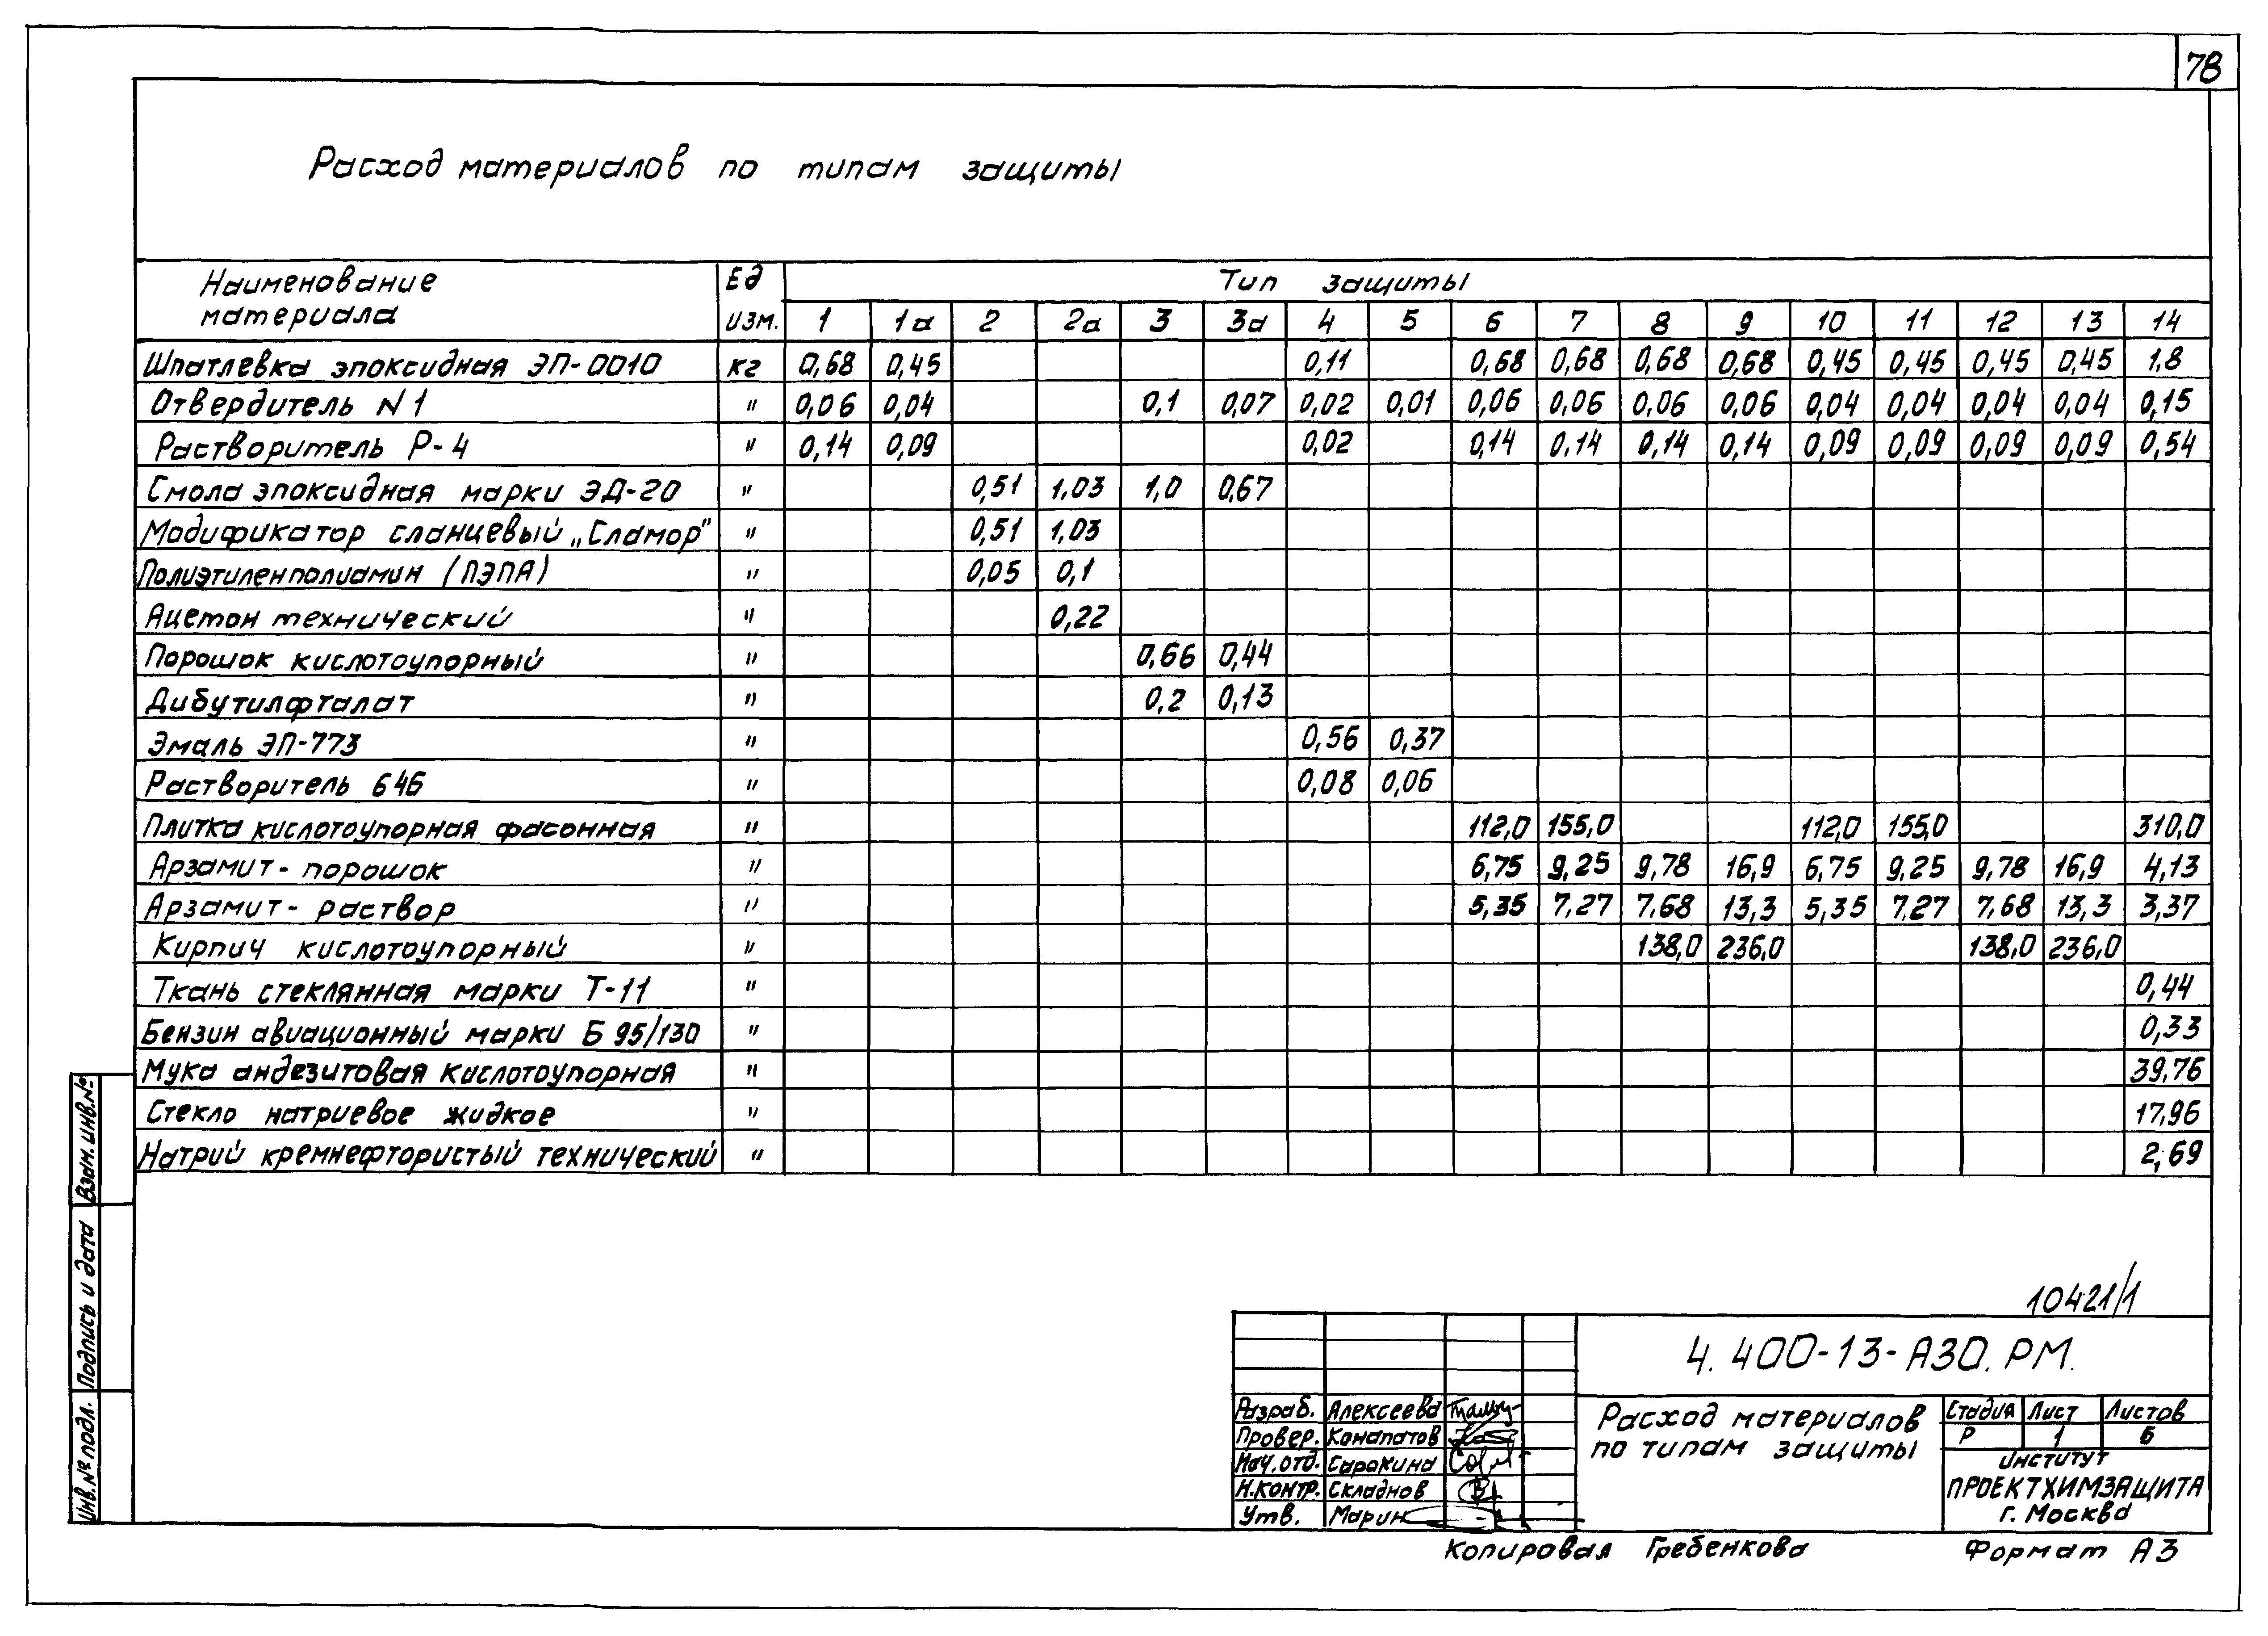 78
Расход материалов по типам защиты
Наименование материала Ед изм. Тип защиты
1 1а 2 2а 3 3а 4 5 6 7 8 9 10 11 12 13 14
Шпатлевка эпоксидная ЭП-0010 кг 0,68 0,45 0,11 0,68 0,68 0,68 0,68 0,45 0,45 0,45 0,45 1,8
Отвердитель N1 " 0,06 0,04 0,1 0,07 0,02 0,01 0,06 0,06 0,06 0,06 0,04 0,04 0,04 0,04 0,15
Растворитель Р-4 " 0,14 0,09 0,02 0,14 0,14 0,14 0,14 0,09 0,09 0,09 0,09 0,54
Смола эпоксидная марки ЭД-20 " 0,51 1,03 1,0 0,67
Модификатор сланцевый „Сламор" " 0,51 1,03
Полиэтиленполиамин (ПЭПА) " 0,05 0,1
Ацетон технический " 0,22
Порошок кислотоупорный " 0,66 0,44
Дибутилфталат " 0,2 0,13
Эмаль ЭП-773 " 0,56 0,37
Растворитель 646 " 0,08 0,06
Плитка кислотоупорная фасонная " 112,0 155,0 112,0 155,0 310,0
Арзамит-порошок " 6,75 9,25 9,78 16,9 6,75 9,25 9,78 16,9 4,13
Арзамит-раствор " 5,35 7,27 7,68 13,3 5,35 7,27 7,68 13,3 3,37
Кирпич кислотоупорный " 138,0 236,0 138,0 236,0
Ткань стеклянная марки Т-11 " 0,44
Бензин авиационный марки Б 95/130 " 0,33
Мука андезитовая кислотоупорная " 39,76
Стекло натриевое жидкое " 17,96
Натрий кремнефтористый технический " 2,69
Взам. инв.№
Подпись и дата
Инв.№ подл.
10421/1
4.400-13-АЗО.РМ.
Разраб. Алексеева
Провер. Конапатов
Нач.отд. Сорокина
Н.контр. Складнов
Утв. Марин
Расход материалов по типам защиты
Стадия Лист Листов
Р 1 6
институт
ПРОЕКТХИМЗАЩИТА
г. Москва
Копировал Гребенкова Формат А3